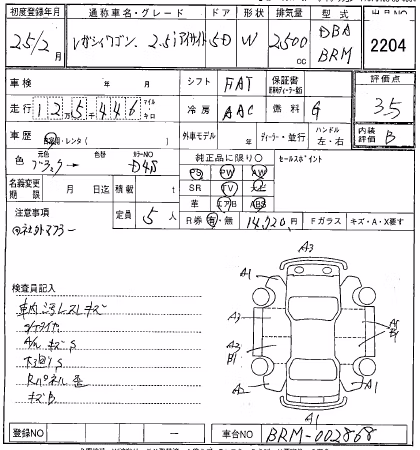 初度登録年月 通称車名・グレード ドア 形状 排気量 型式 出品NO
25/2月 レガシィワゴン. 2.5iアイサイト 5D W 2,500cc DBA BRM 2204
車検 年 月 シフト FAT 保証書 評価点
走行 125千446 マイル キロ 冷房 AAC 燃料 G 3.5
車歴 自家用・レンタ( ) 外車モデル ディーラー・並行 ハンドル 左・右 内装評価 B
色 元色 ブラック 色替 カラーNO D4S 純正品に限り○ セールスポイント
名義変更期限 月 日迄 積載 t PS PW AW
SR TV ナビ
革 エアB ABS
注意事項 定員 5人 R券 有・無 14,720円 Fガラス キズ・A・X要す
社外マフラー
検査員記入
車内汚レスレキズ
タイヤ
A/W キズS
下廻りS
Rパネル歪
キズB
A3
A1 A1
A1 A1
A2 B1 B1
A2 A1
A1
登録NO ー 車台NO BRM-002868